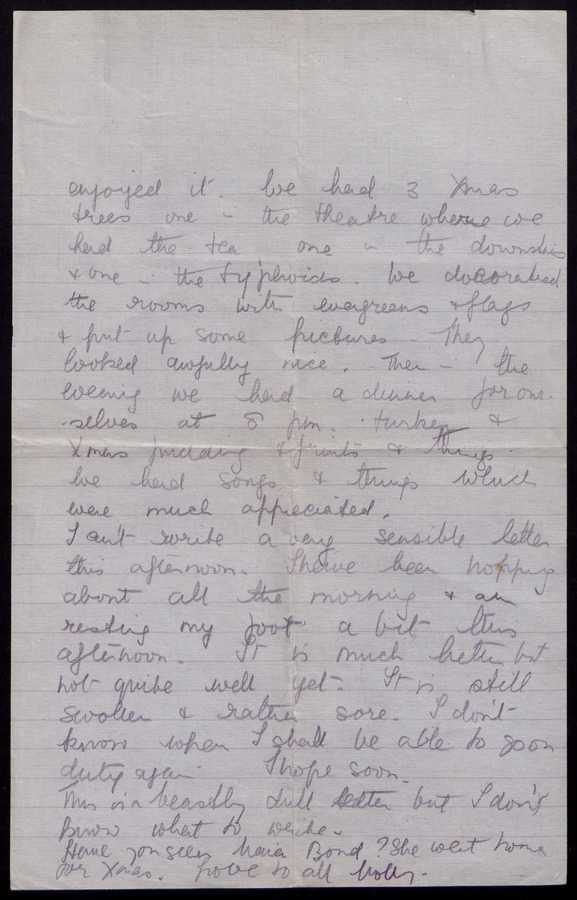 enjoyed it. We had 3 Xmas
trees one in the theatre where we
had the tea one in the downstairs
& one in the typhoids. We decorated
the rooms with evergreens & flags
& put up some pictures. They
looked awfully nice. Then in the
evening we had a dinner for our-
selves at 8 pm. turkey &
Xmas pudding & fruits & things.
We had songs & things which
were much appreciated.
I can't write a very sensible letter
this afternoon. I have been hopping
about all the morning & am
resting my foot a bit this
afternoon. It is much better but
not quite well yet. It is still
swollen & rather sore. I don't
know when I shall be able to go on
duty again I hope soon.
This is a beastly dull letter but I don't
know what to write.
Have you seen Bond? She went home
for Xmas. Love to all Molly.